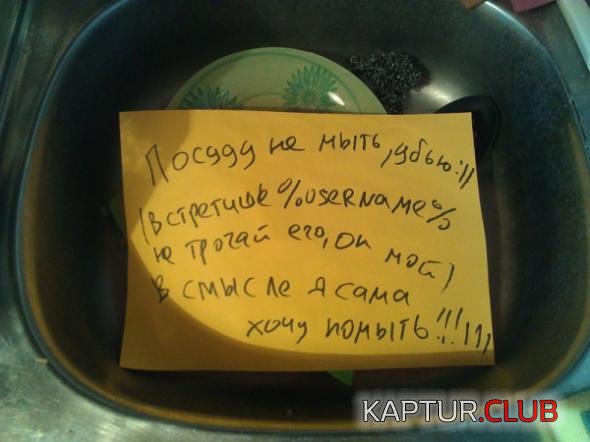 Посуду не мыть, убью:))
(встретишь %username%
не трогай его, он мой)
в смысле я сама
хочу помыть!!!111
KAPTUR.CLUB